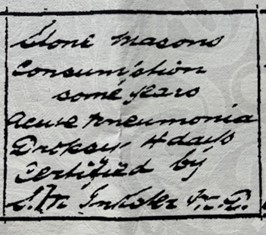 Stone Masons
Consumption
some years
Acute Pneumonia
Dropsy 4 days
Certified by
M.D.